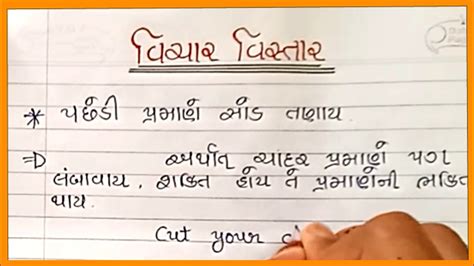 વિચાર વિસ્તાર
* પછેડી પ્રમાણે સોડ તણાય.
⇒ અર્થાત ચાદર પ્રમાણે પગ
લંબાવાય. શક્તિ હોય તે પ્રમાણેની ભક્તિ
થાય.
Cut your